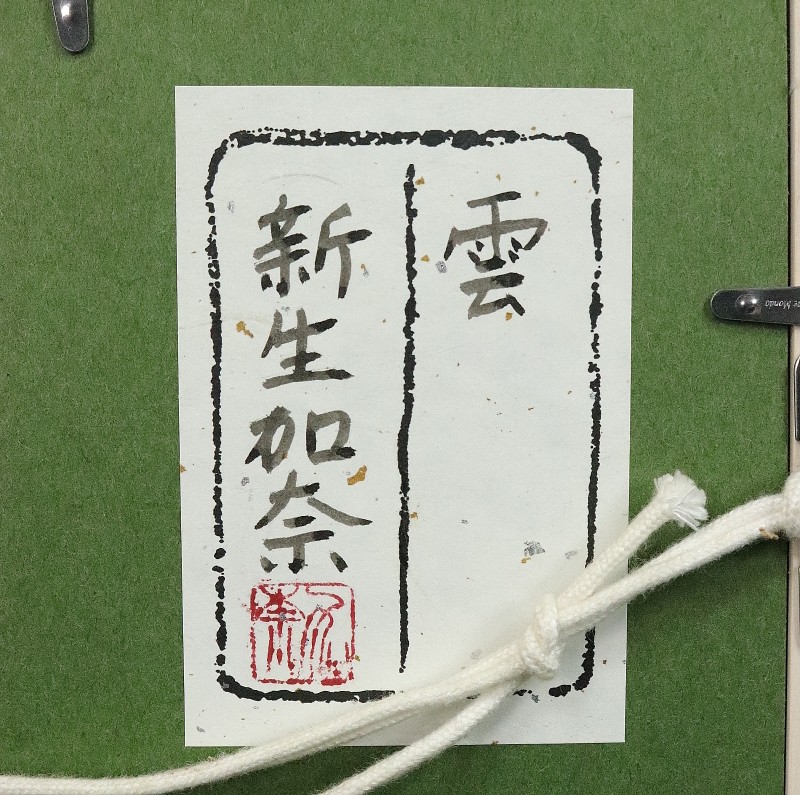 雲
新生加奈